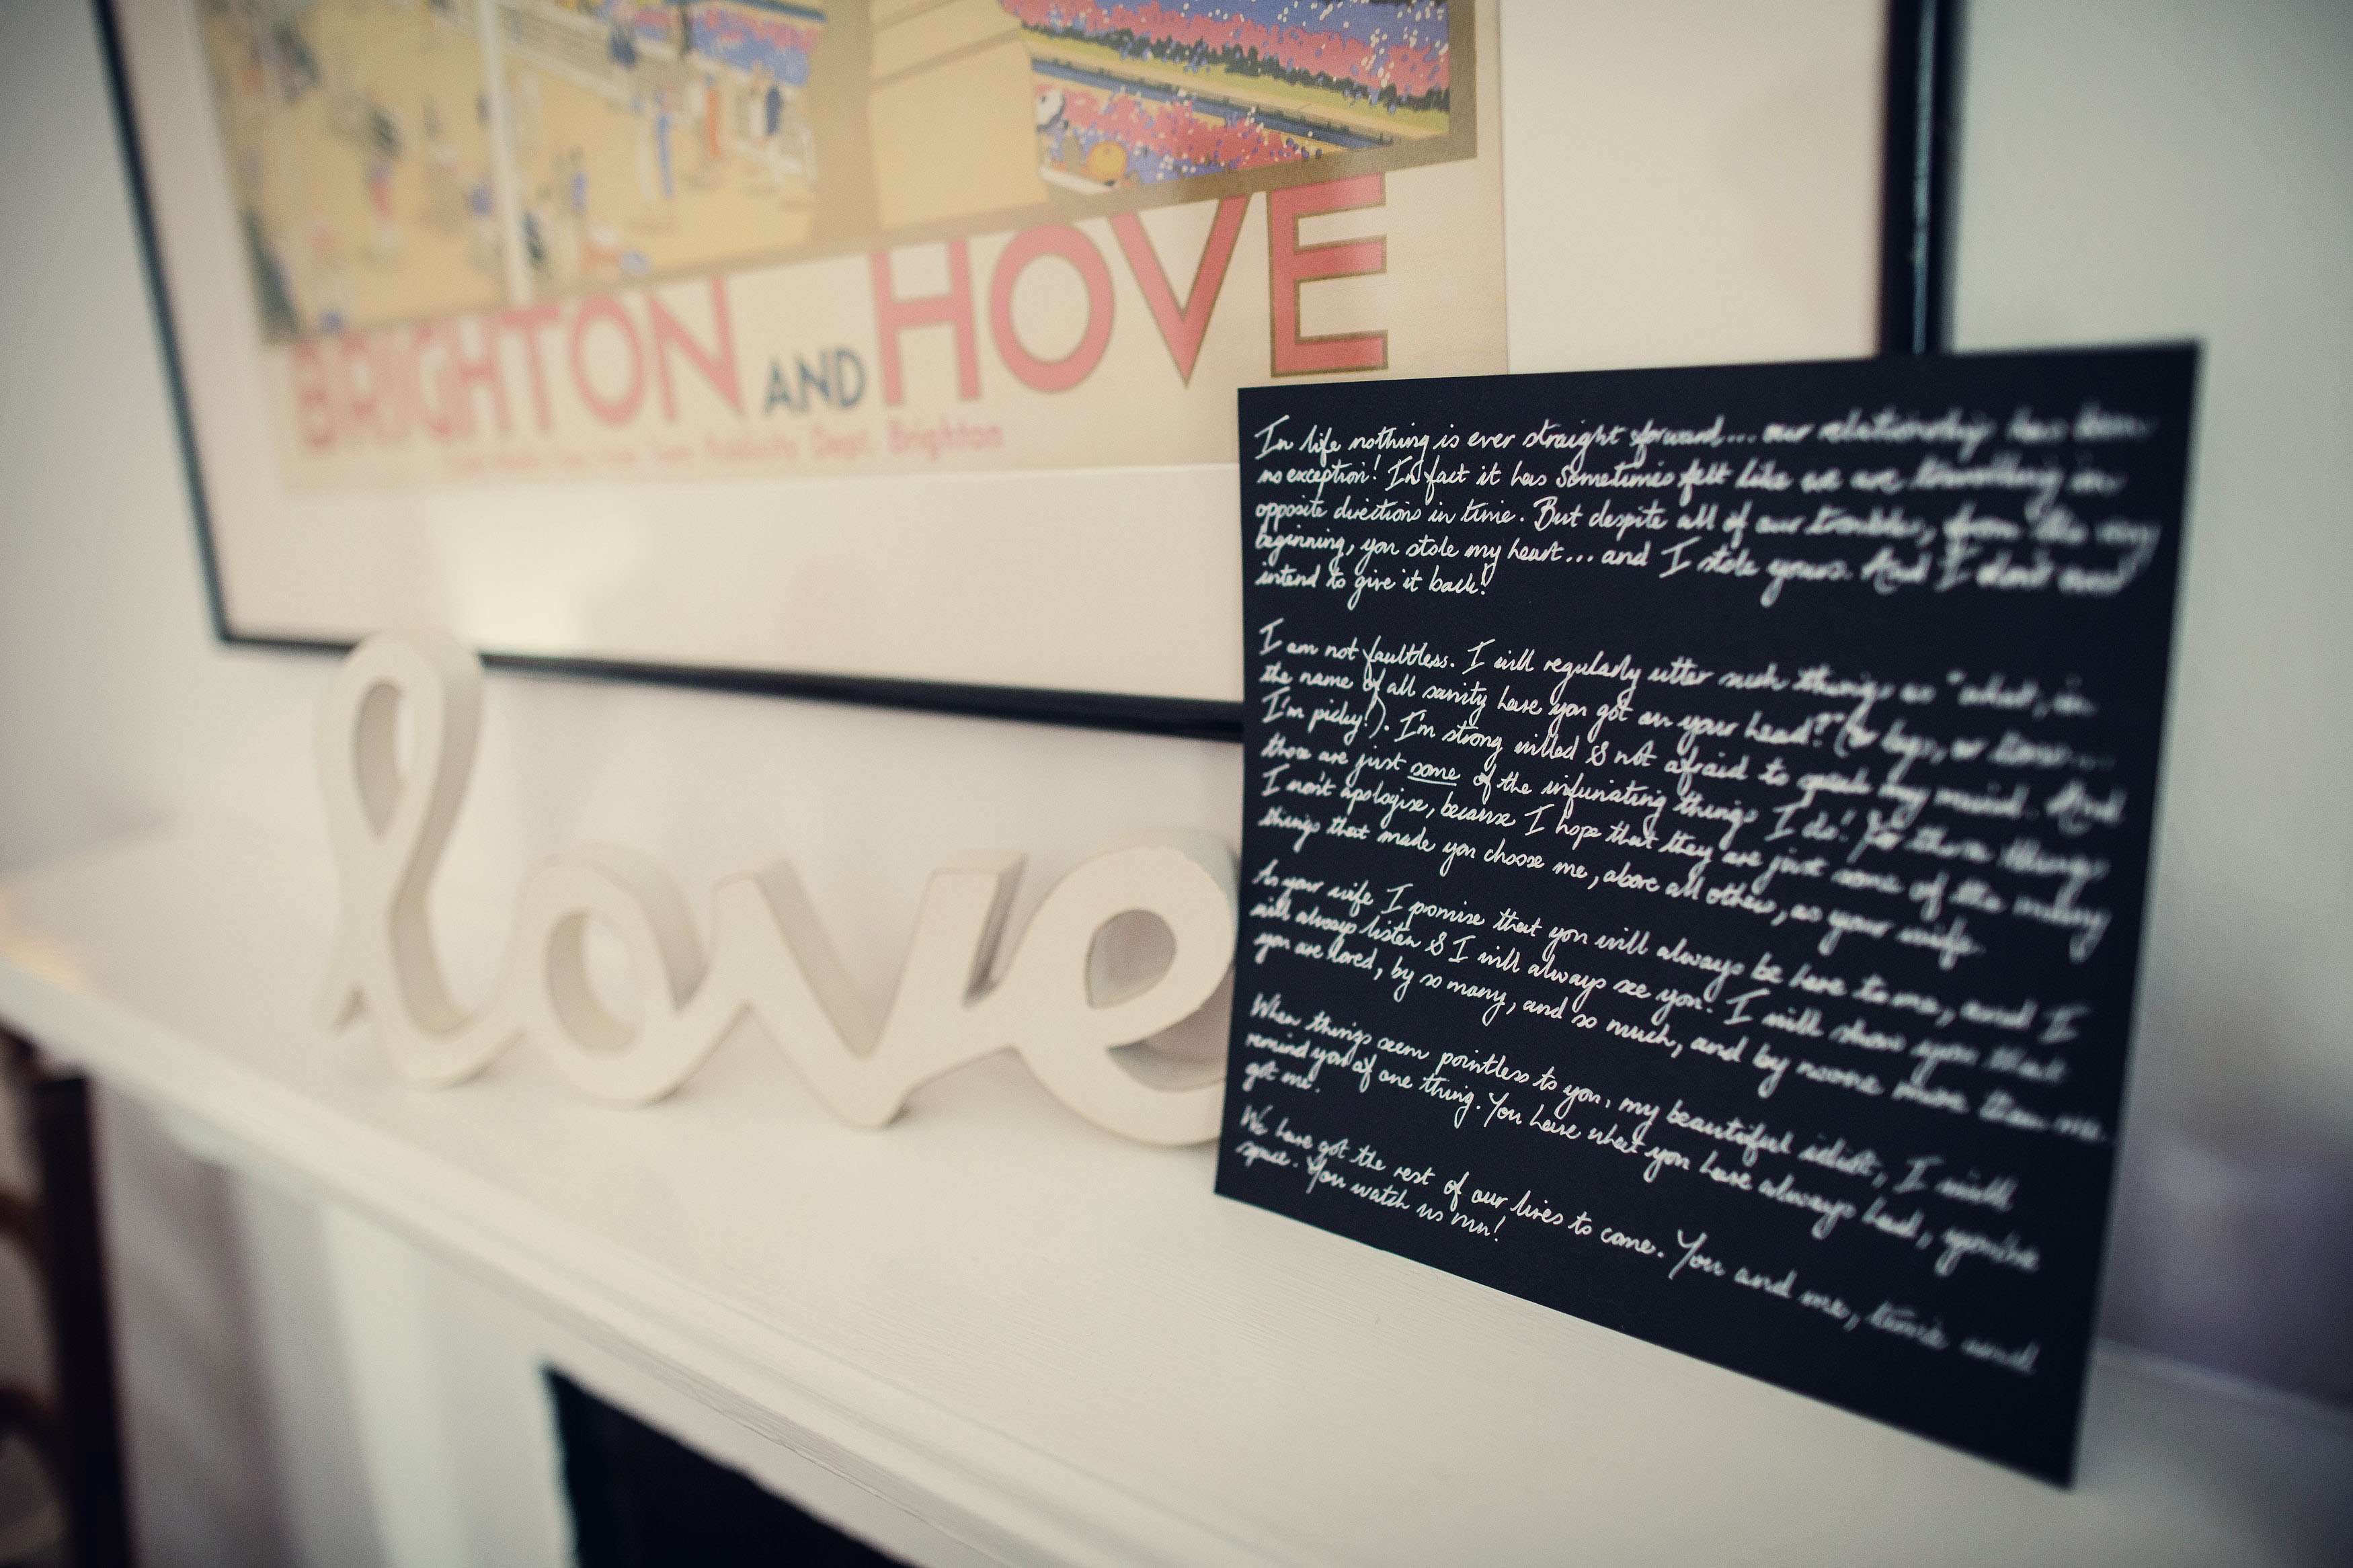 BRIGHTON AND HOVE
Publicity Dept. Brighton
love
In life nothing is ever straight forward... our relationship has been
no exception! In fact it has sometimes felt like we are travelling in
opposite directions in time. But despite all of our troubles, from the very
beginning, you stole my heart... and I stole yours. And I don't
intend to give it back!
I am not faultless. I will regularly utter such things as "what, in
the name of all sanity have you got on your head?" (or legs, or torso...
I'm picky!). I'm strong willed & not afraid to speak my mind. And
those are just some of the infuriating things I do! For these things
I won't apologise, because I hope that they are just some of the many
things that made you choose me, above all others, as your wife.
As your wife I promise that you will always be here to me, and I
will always listen & I will always see you. I will show you that
you are loved, by so many, and so much, and by noone more than me.
When things seem pointless to you, my beautiful idiot, I will
remind you of one thing. You have what you have always had, you've
got me.
We have got the rest of our lives to come. You and me, time and
space. You watch us run!